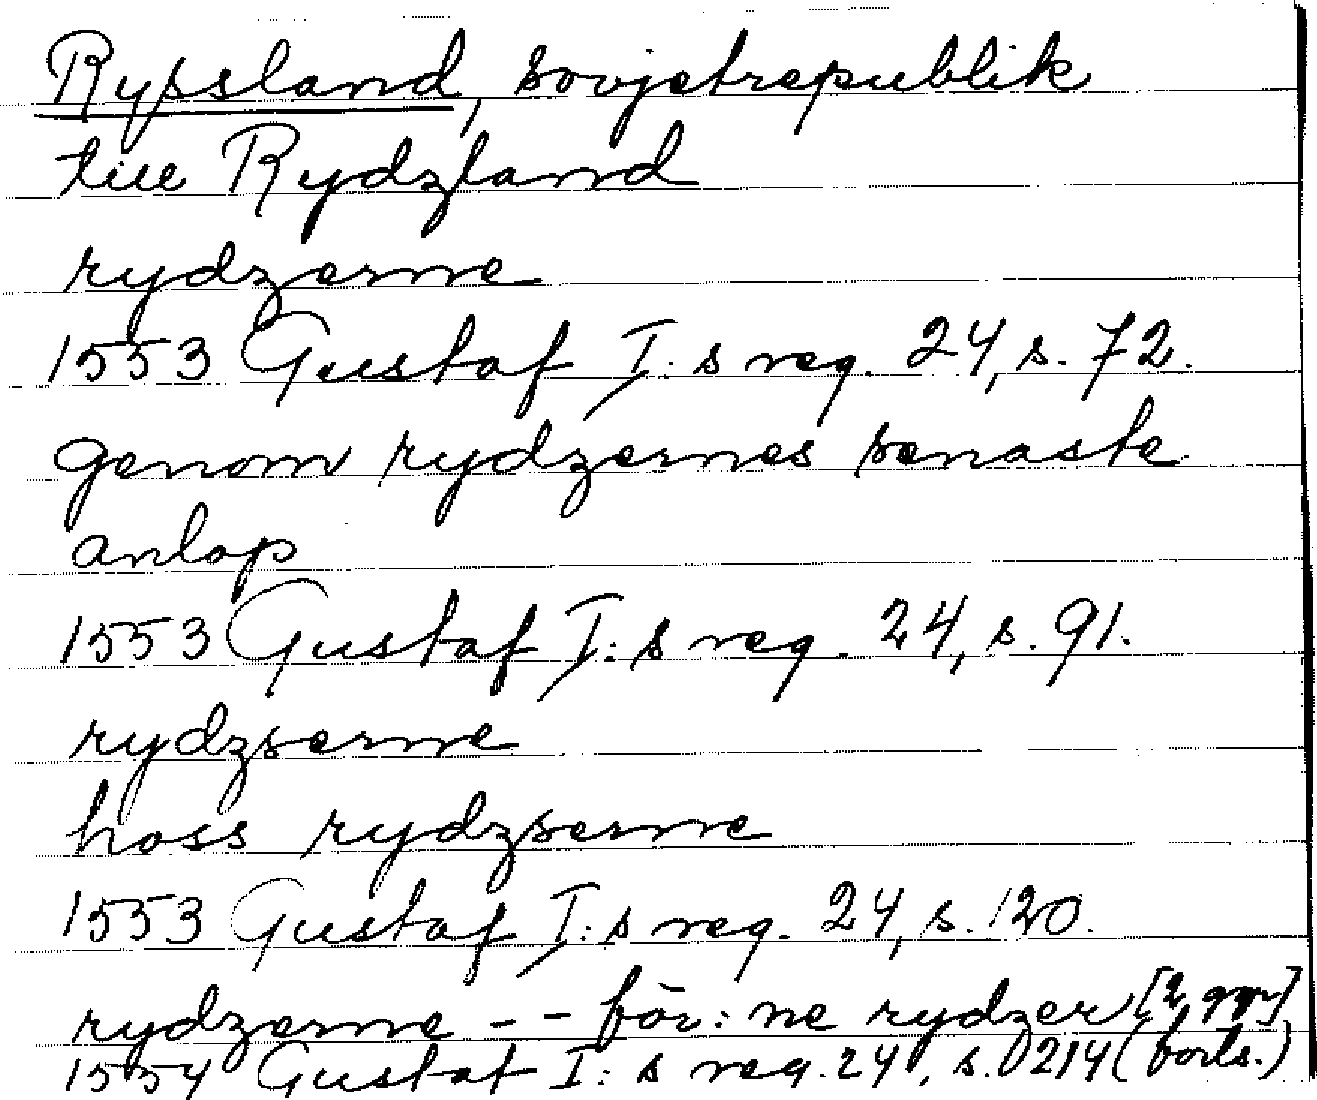 Ryssland, Sovjetrepublik
till Rydzland
rydzerne
1553 Gustaf I:s reg. 24, s. 72.
genom rydzernes senaste
anlop
1553 Gustaf I:s reg. 24, s. 91.
rydzserne
hoss rydzserne
1553 Gustaf I:s reg. 24, s. 120.
rydzerne -- för:ne rydzer [2 ggr]
1554 Gustaf I:s reg. 24, s. 214 (forts.)